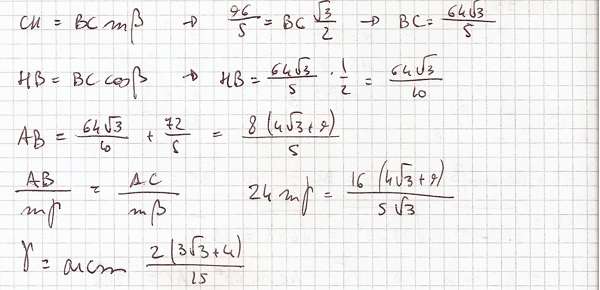 CH = BC sin β → 96/5 = BC √3/2 → BC = 64√3/5
HB = BC cos β → HB = 64√3/5 · 1/2 = 64√3/10
AB = 64√3/10 + 72/5 = 8(4√3+9)/5
AB/sin γ = AC/sin β 24 sin γ = 16(4√3+9)/5√3
γ = arcsin 2(3√3+4)/15